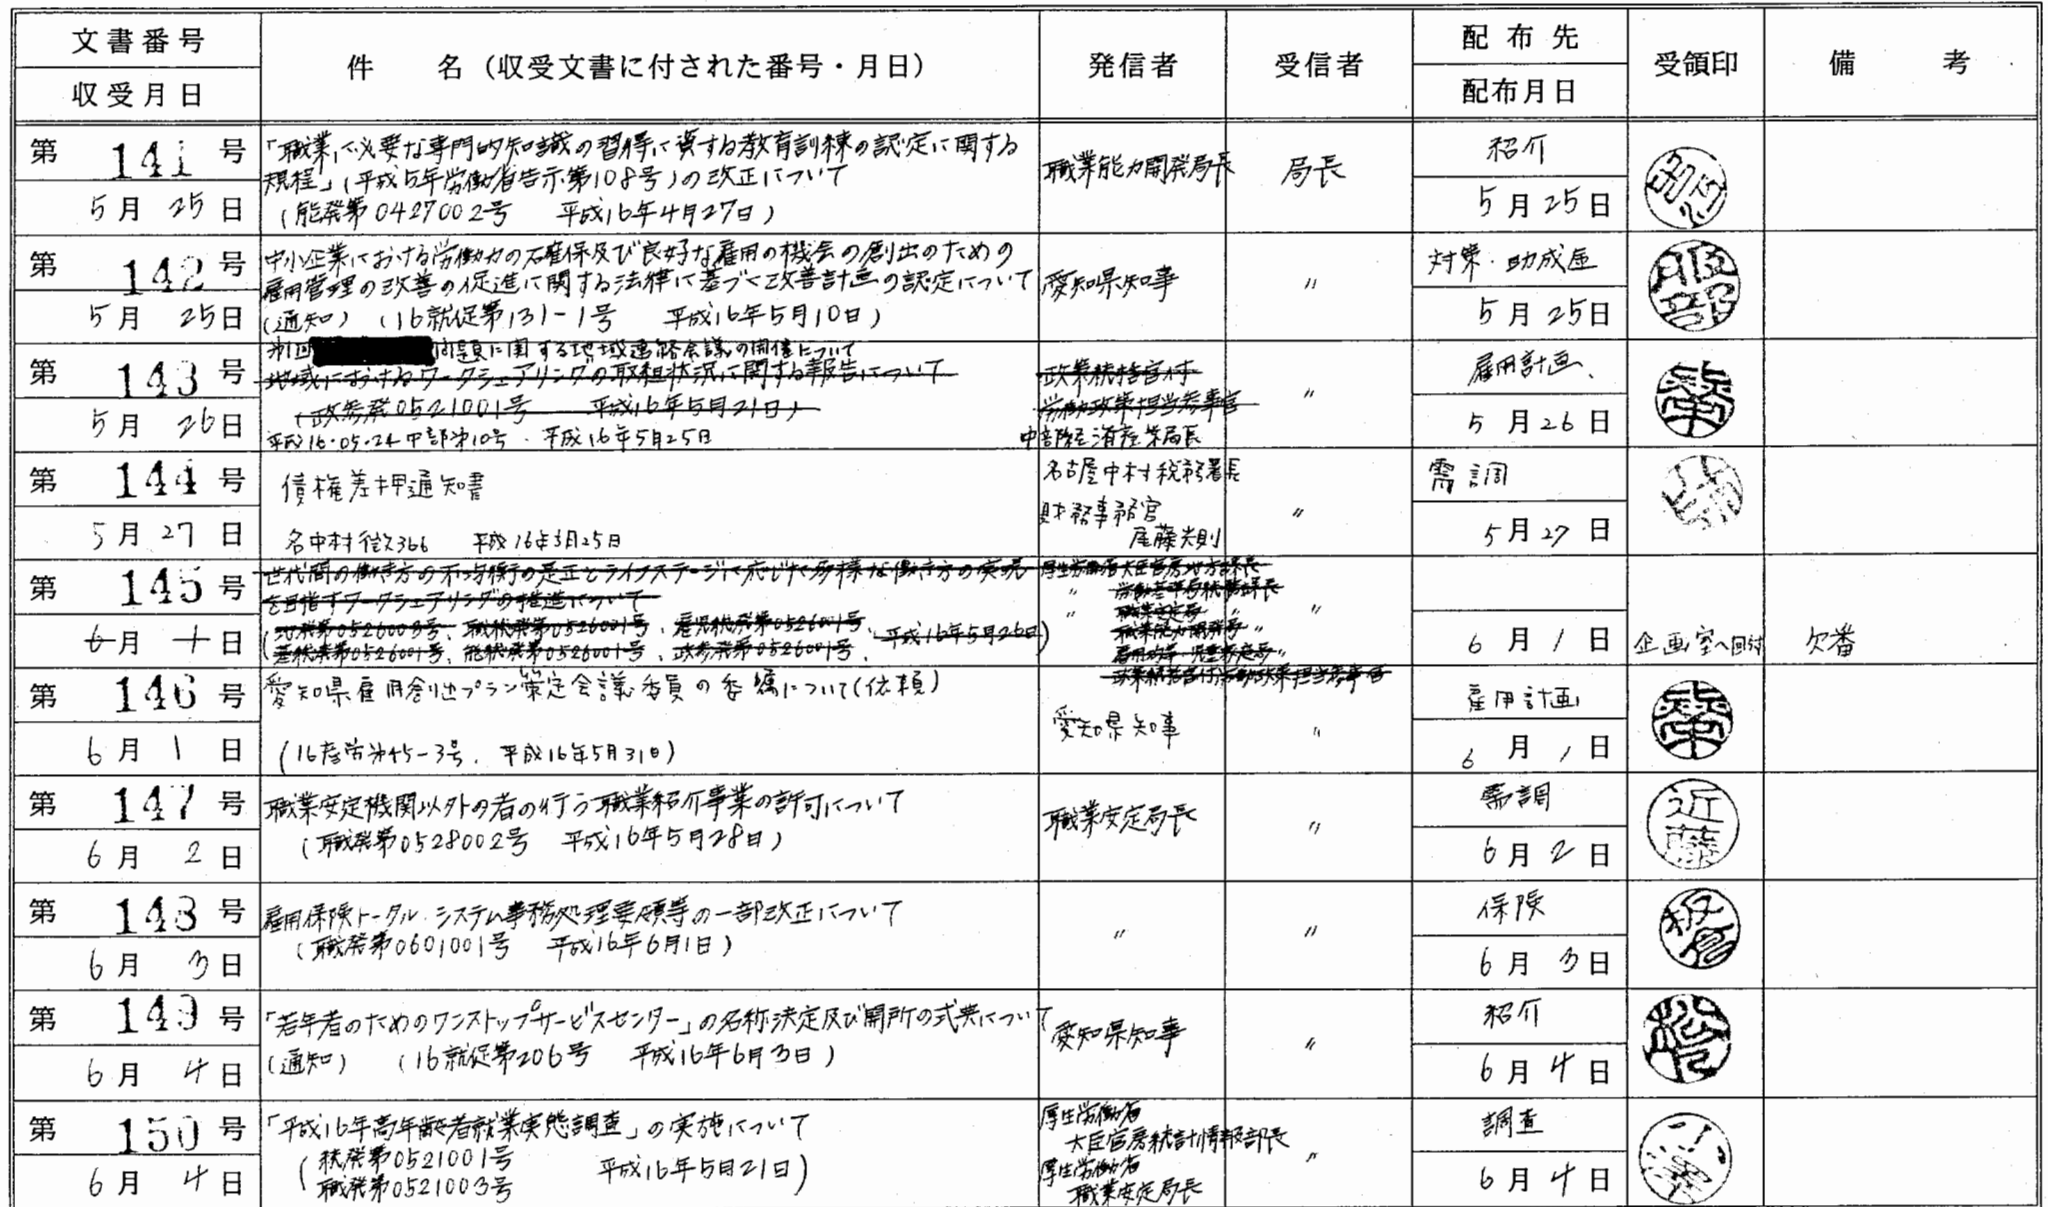 文書番号
収受月日
件 名(収受文書に付された番号・月日)
発信者
受信者
配布先
配布月日
受領印
備 考
第 141 号
5月 25日
「職業に必要な専門的知識の習得に資する教育訓練の認定に関する
規程」(平成5年労働省告示第108号)の改正について
(能発第0427002号 平成16年4月27日)
職業能力開発局長
局長
紹介
5月25日
第 142 号
5月 25日
中小企業における労働力の確保及び良好な雇用の機会の創出のための
雇用管理の改善の促進に関する法律に基づく改善計画の認定について
(通知) (16就促第131-1号 平成16年5月10日)
愛知県知事
〃
対策・助成
5月25日
服部
第 143 号
5月 26日
第1回 問題に関する地域連絡会議の開催について
地域におけるワークシェアリングの取組状況に関する報告について
(政参発0521001号 平成16年5月21日)
平成16・05・24中部第10号 平成16年5月25日
政策統括官付
労働政策担当参事官
中部経済産業局長
〃
雇用計画
5月26日
第 144 号
5月27日
債権差押通知書
名中村徴366 平成16年5月25日
名古屋中村税務署長
財務事務官
尾藤光則
〃
需調
5月27日
第 145 号
6月 1日
世代間の働き方の不均衡の是正とライフステージに応じた多様な働き方の実現
を目指すワークシェアリングの推進について
(地発第0526003号、職総発第0526001号、雇児総発第0526001号、
基総発第0526001号、能総発第0526001号、政参発第0526001号、平成16年5月26日)
厚生労働省大臣官房地方課長
〃 労働基準局総務課長
〃 職業安定局 〃
職業能力開発局 〃
雇用均等・児童家庭局 〃
政策統括官付労働政策担当参事官
〃
6月1日
企画室へ回付
欠番
第 146 号
6月 1日
愛知県雇用創出プラン策定会議委員の委嘱について(依頼)
(16産労第45-3号、平成16年5月31日)
愛知県知事
〃
雇用計画
6月1日
第 147 号
6月 2日
職業安定機関以外の者の行う職業紹介事業の許可について
(職発第0528002号 平成16年5月28日)
職業安定局長
〃
需調
6月2日
近藤
第 148 号
6月 3日
雇用保険トータル・システム事務処理要領等の一部改正について
(職発第0601001号 平成16年6月1日)
〃
〃
保険
6月3日
第 149 号
6月 4日
「若年者のためのワンストップサービスセンター」の名称決定及び開所の式典について
(通知) (16就促第206号 平成16年6月3日)
愛知県知事
〃
紹介
6月4日
第 150 号
6月 4日
「平成16年高年齢者就業実態調査」の実施について
(統発第0521001号
職発第0521003号 平成16年5月21日)
厚生労働省
大臣官房統計情報部長
厚生労働省
職業安定局長
〃
調査
6月4日